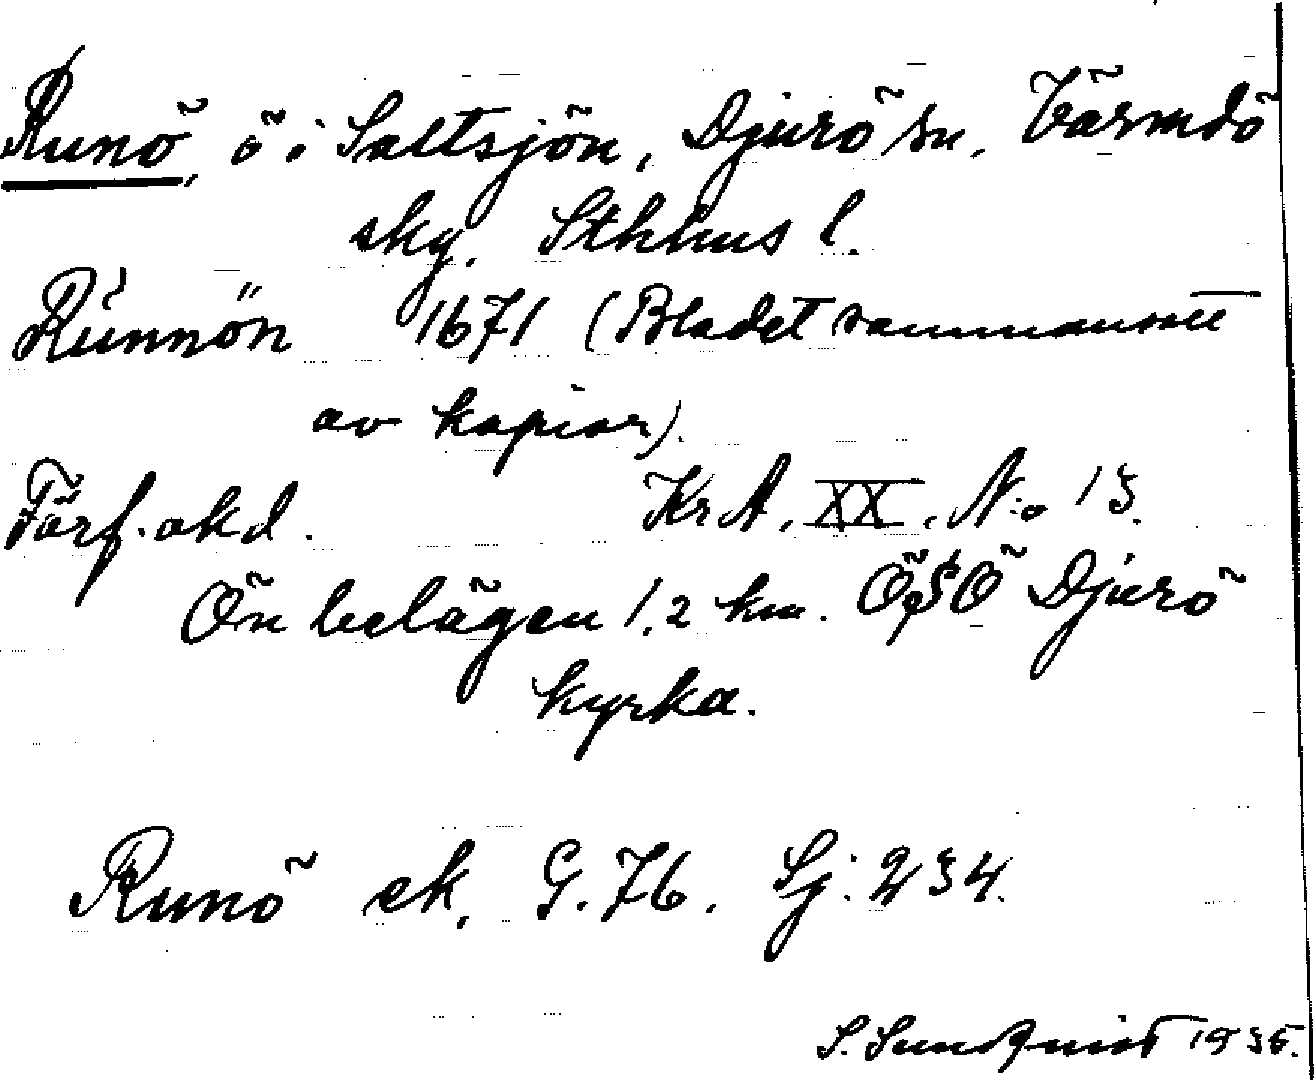 Runö, ö i Saltsjön, Djurö sn, Värmdö
skg. Sthlms l.
Runnön 1671 (Bladet sammansatt
av kopior).
Förf. okd. KrA, XX, N:o 13.
Ön belägen 1,2 km. ÖSÖ Djurö
kyrka.
Runö ek. G. 76. Sj. 234.
S. Sundquist 1935.